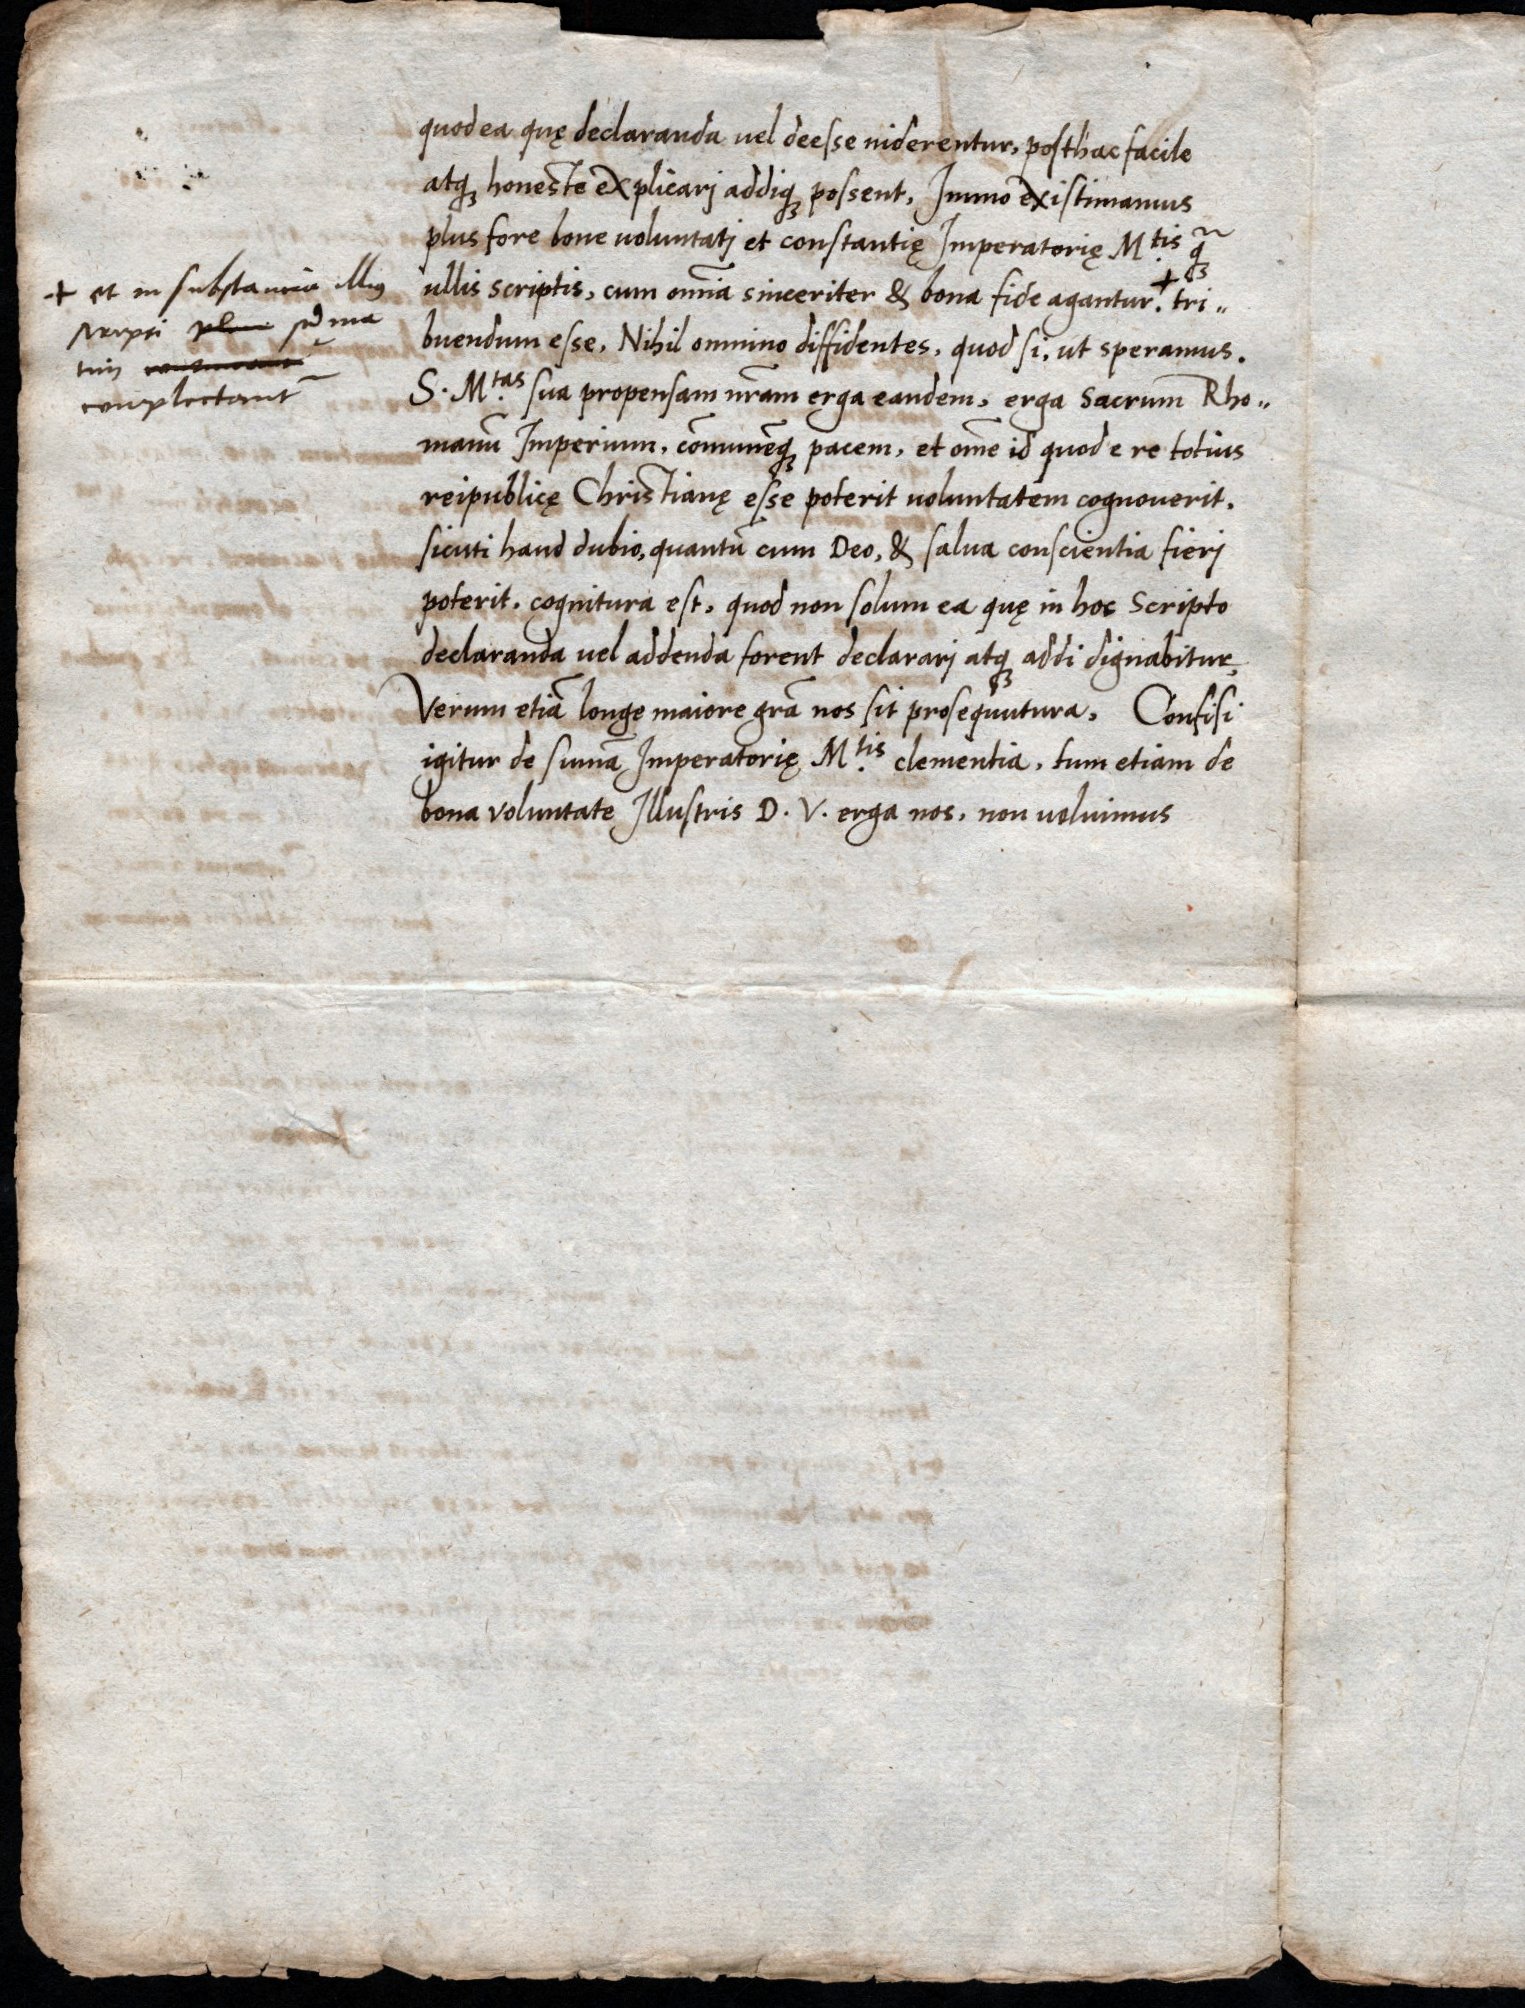 quod ea quę declaranda uel deesse uiderentur, posthac facile
atqꝫ honeste explicarj addiqꝫ possent, Immo existimamus
plus fore bone uoluntatj et constantię Imperatorię M.tis q̃ꝫ
ullis scriptis, cum om̃ia sinceriter & bona fide agantur. + tri„
buendum esse, Nihil omnino diffidentes, quod si, ut speramus.
S. M.tas sua propensam nr̃am erga eandem, erga Sacrum Rho„
manũ Imperium, com̃unẽqꝫ pacem, et om̃e id quod e re totius
reipublicę Christianę esse poterit uoluntatem cognouerit,
sicuti haud dubio, quantũ cum Deo, & salua conscientia fierj
poterit, cognitura est, quod non solum ea quę in hoc Scripto
declaranda uel addenda forent declararj atqꝫ addi dignabitur,
Verum etiã longe maiore gr̃a nos sit prosequutura, Confisi
igitur de sum̃a Imperatorię M.tis clementia, tum etiam de
bona voluntate Illustris D. V. erga nos, non uoluimus
+ et in substantia illius
scripti
complectant̃